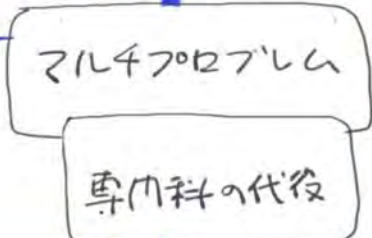 マルチプロブレム
専門科の代役